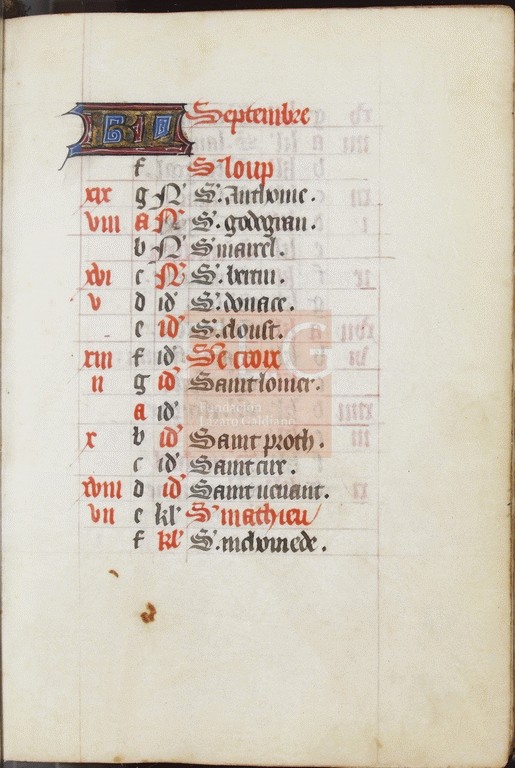 KL Septembre
f S' loup
xix g N' S'. Anthonie.
viii a N' S'. godegran.
b N' S' marcel.
xvi c N' S'. bertin.
v d id' S'. donace.
e id' S'. cloust.
xiii f id' Ste croix
ii g id' Saint lomer.
a id'
x b id' Saint proth.
c id' Saint cir.
xviii d id' Saint
vii e kl' S' mathieu
f kl' S'. nichomede.
Fundación
Lázaro Galdiano